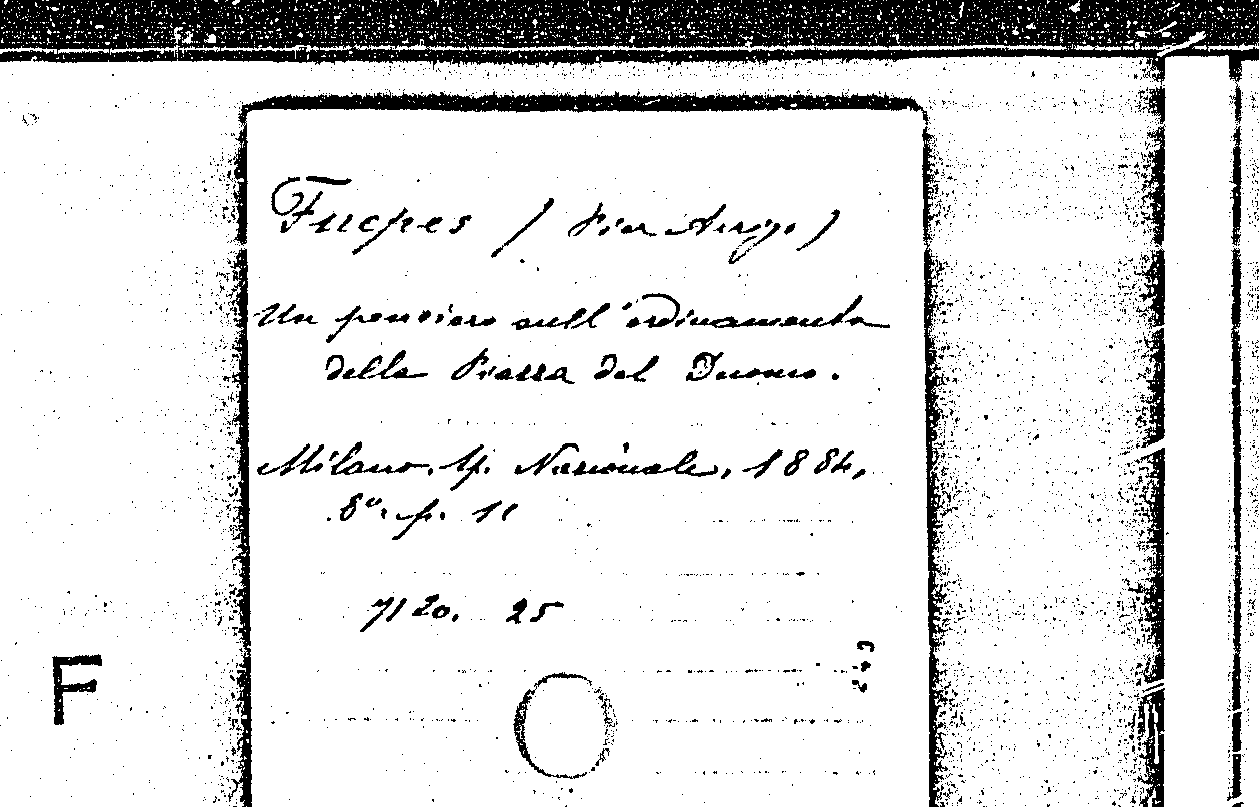 Fucpes (Pier Arrigo)
Un pensiero sull'ordinamento
della Piazza del Duomo.
Milano, tip. Nazionale, 1884,
8º. p. 11
7120. 25
243
F